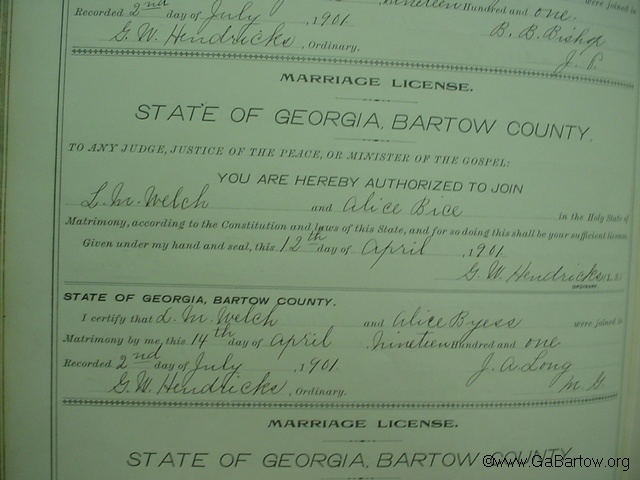 nineteen Hundred and one. were joined in
Recorded 2nd day of July , 1901
B. B. Bishop
G. W. Hendricks , Ordinary.
J. P.
MARRIAGE LICENSE.
STATE OF GEORGIA, BARTOW COUNTY.
TO ANY JUDGE, JUSTICE OF THE PEACE, OR MINISTER OF THE GOSPEL:
YOU ARE HEREBY AUTHORIZED TO JOIN
L. M. Welch and Alice Bice in the Holy State of
Matrimony, according to the Constitution and laws of this State, and for so doing this shall be your sufficient license.
Given under my hand and seal, this 12th day of April , 1901
G. W. Hendricks (L.S.)
ORDINARY.
STATE OF GEORGIA, BARTOW COUNTY.
I certify that L. M. Welch and Alice Byess were joined in
Matrimony by me, this 14th day of April nineteen Hundred and one
Recorded 2nd day of July , 1901. J. A. Long
G. W. Hendricks , Ordinary. M. G.
MARRIAGE LICENSE.
STATE OF GEORGIA, BARTOW COUNTY
©www.GaBartow.org